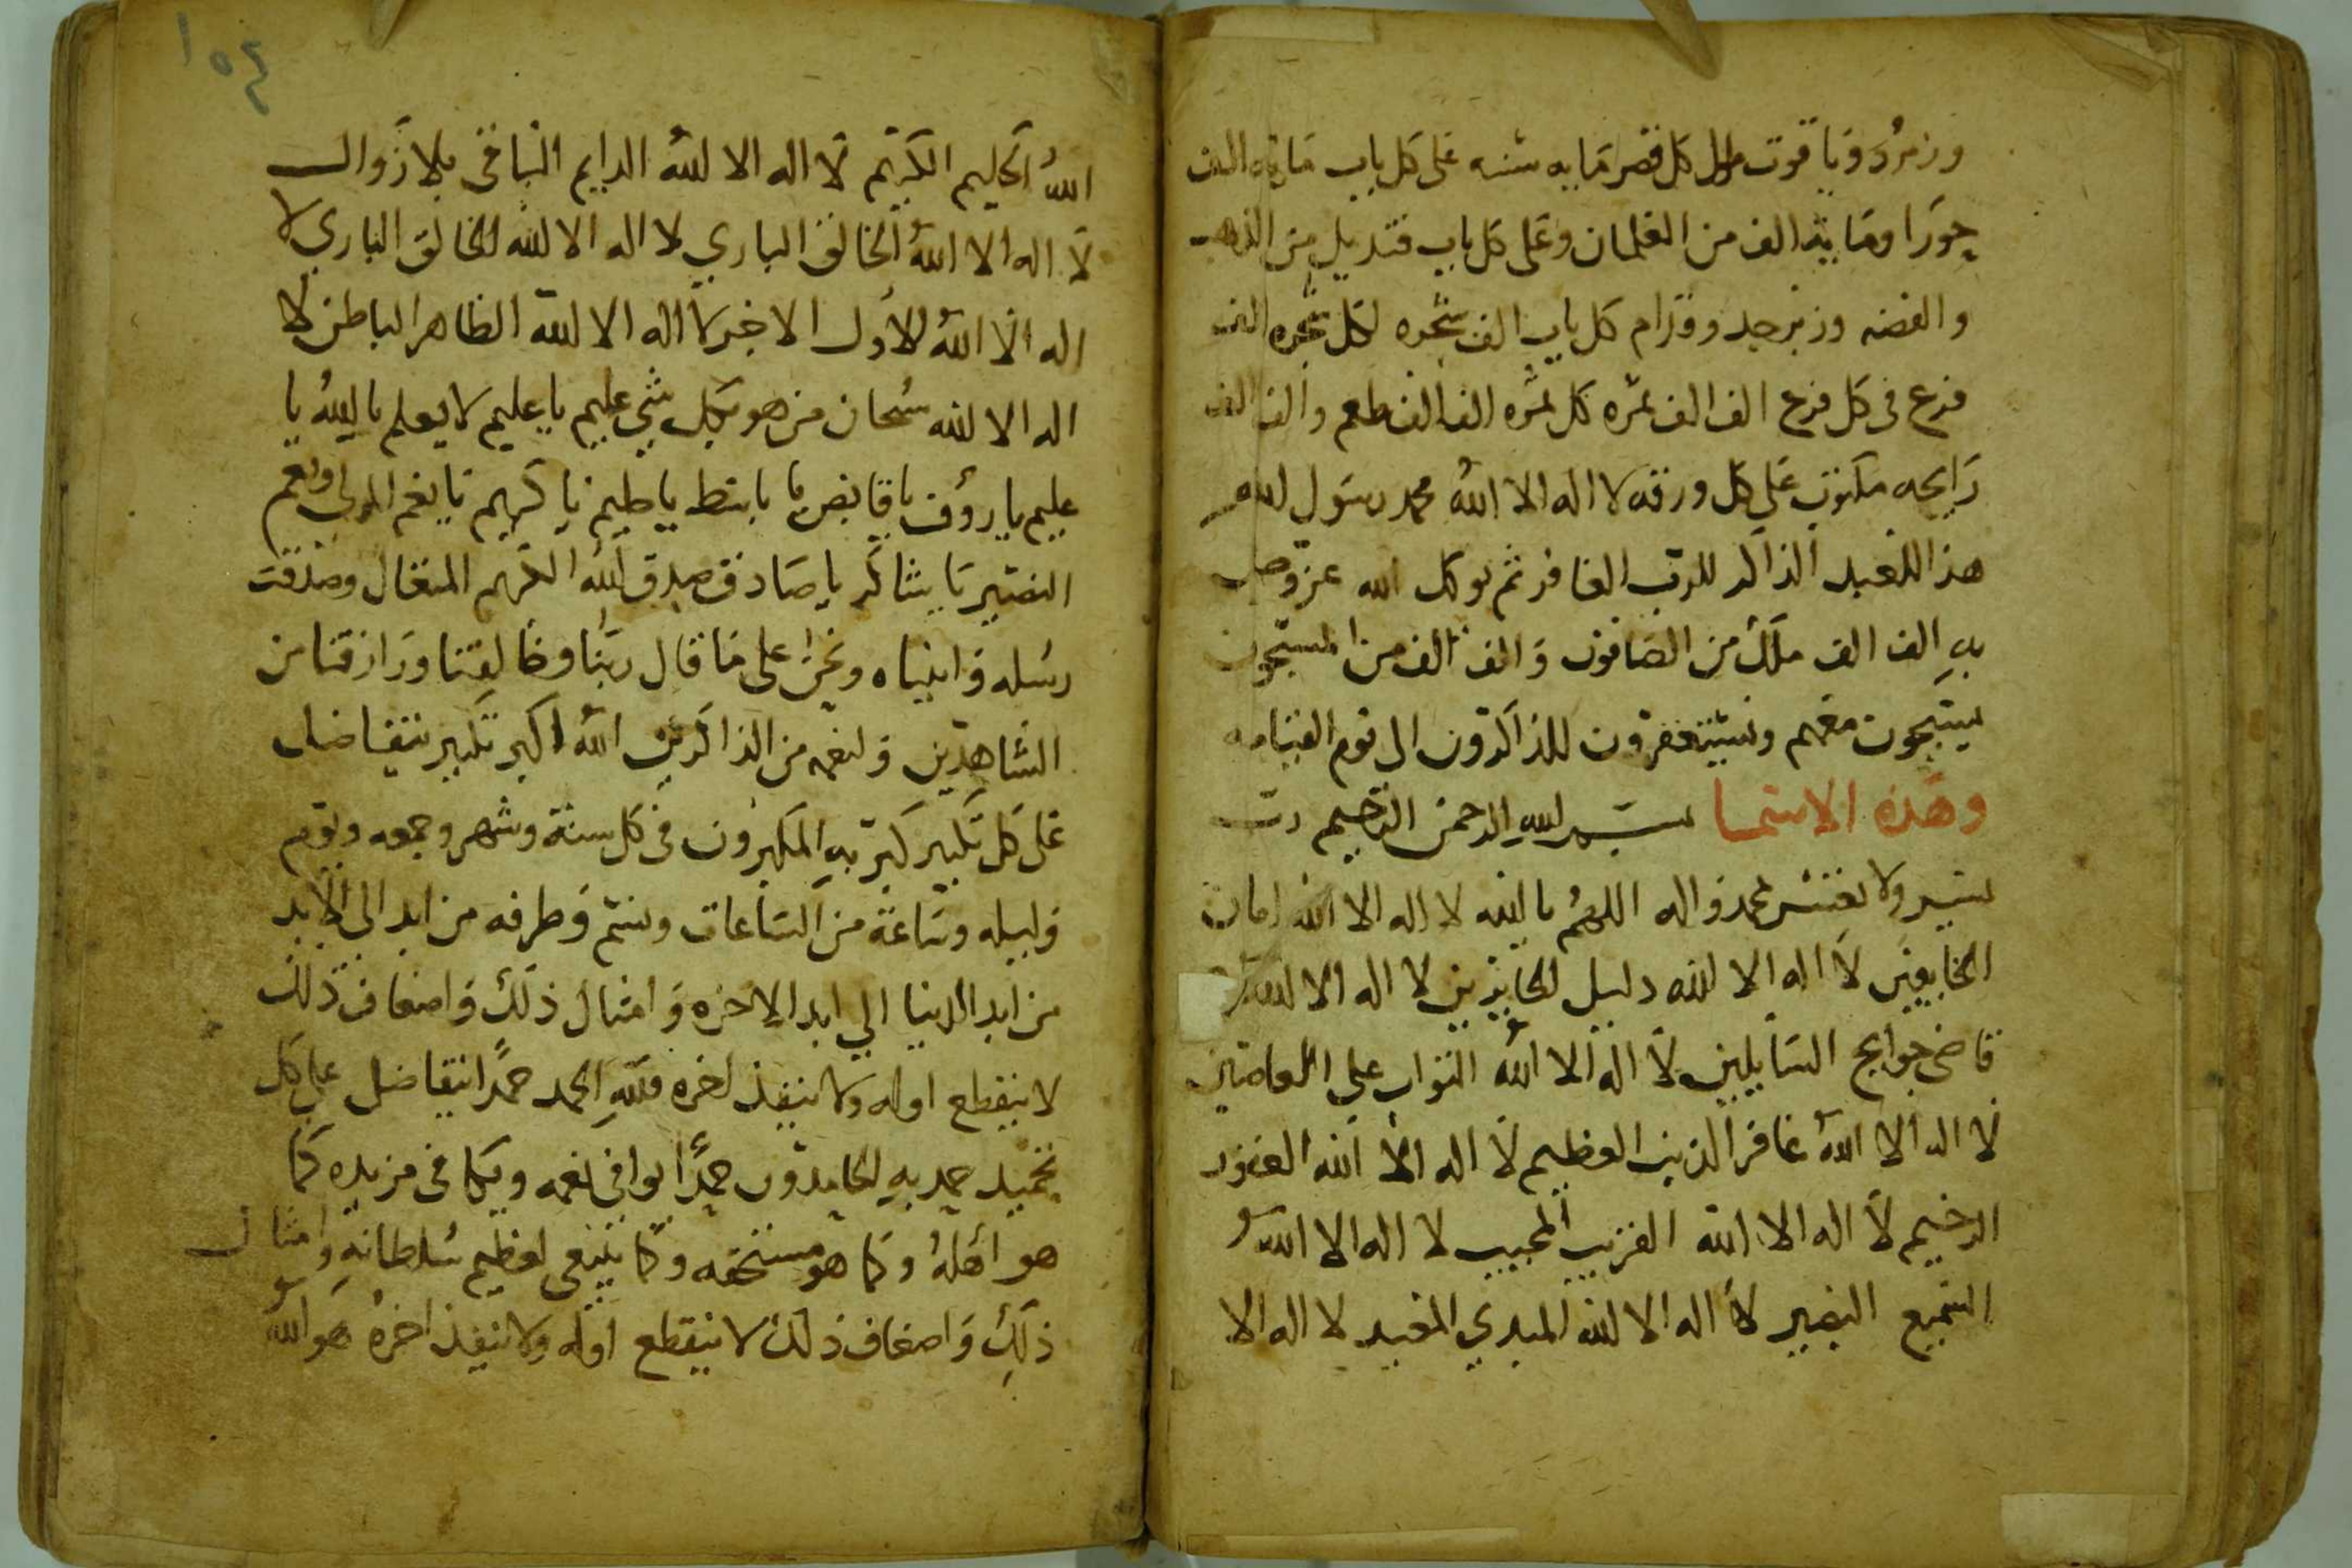 وزمرد وياقوت طول كل قصر مايه سنه على كل باب مايه الف
حورا ومايه الف من الغلمان وعلى كل باب قنديل من الذهب
والفضه وزبرجد وقدام كل باب الف شجره لكل شجره الف
فرع في كل فرع الف الف ثمره كل ثمره الف الف طعم والف الف
رايحه مكتوب على كل ورقه لا اله الا الله محمد رسول الله
هذا للعبد الذاكر للرب الغافر ثم يوكل الله عز وجل
به الف الف ملك من الصافون والف الف من المسبحون
يسبحون معهم ويستغفرون للذاكرون الى يوم القيامه
وهذه الاسما بسم الله الرحمن الرحيم رب
يسير ولا تعسر محمد واله اللهم يا الله لا اله الا الله امان
الخايفين لا اله الا الله دليل الحايرين لا اله الا الله
قاضى حوايج السايلين لا اله الا الله التواب على العاصين
لا اله الا الله غافر الذنب العظيم لا اله الا الله الغفور
الرحيم لا اله الا الله القريب المجيب لا اله الا الله
السميع البصير لا اله الا الله المبدي المعيد لا اله الا
١٥٤
الله الحليم الكريم لا اله الا الله الدايم الباقى بلا زوال
لا اله الا الله الخالق الباري لا اله الا الله الخالق الباري لا
اله الا الله الاول الاخر لا اله الا الله الظاهر الباطن لا
اله الا الله سبحان من هو بكل شي عليم يا عليم لا يعلم يا الله يا
عليم يا رؤف يا قابض يا باسط يا حليم يا كريم يا نعم المولى ونعم
النصير يا شاكر يا صادق صدق الله الكريم المتعال وصدقت
رسله وانبياه ونحن على ما قال ربنا وخالقنا ورازقنا من
الشاهدين ولنعمه من الذاكرين الله اكبر تكبير يتفاضل
على كل تكبير كبر به المكبرون في كل سنة وشهر وجمعه ويوم
وليله وساعة من الساعات وشم وطرفه من ابد الى الابد
من ابد الدنيا الي ابد الاخره وامثال ذلك واضعاف ذلك
لا ينقطع اوله ولا ينفذ اخره فلله الحمد حمدا يتفاضل على كل
تحميد حمد به الحامدون حمدا يوافي نعمه ويكافى مزيده كما
هو اهله وكما هو مستحقه وكما ينبغى لعظيم سلطانه وامثال
ذلك واضعاف ذلك لا ينقطع اوله ولا ينفذ اخره هو الله